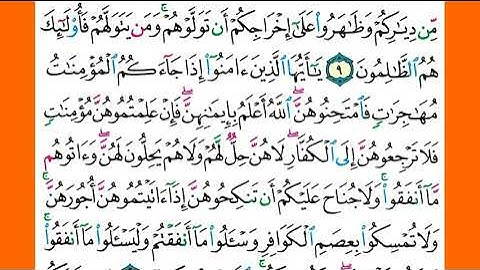 مِّن دِيَـٰرِكُمْ وَظَـٰهَرُوا۟ عَلَىٰٓ إِخْرَاجِكُمْ أَن تَوَلَّوْهُمْ ۚ وَمَن يَتَوَلَّهُمْ فَأُو۟لَـٰٓئِكَ
هُمُ ٱلظَّـٰلِمُونَ ٩ يَـٰٓأَيُّهَا ٱلَّذِينَ ءَامَنُوٓا۟ إِذَا جَآءَكُمُ ٱلْمُؤْمِنَـٰتُ
مُهَـٰجِرَٰتٍ فَٱمْتَحِنُوهُنَّ ۖ ٱللَّهُ أَعْلَمُ بِإِيمَـٰنِهِنَّ ۖ فَإِنْ عَلِمْتُمُوهُنَّ مُؤْمِنَـٰتٍ
فَلَا تَرْجِعُوهُنَّ إِلَى ٱلْكُفَّارِ ۖ لَا هُنَّ حِلٌّ لَّهُمْ وَلَا هُمْ يَحِلُّونَ لَهُنَّ ۖ وَءَاتُوهُم
مَّآ أَنفَقُوا۟ ۚ وَلَا جُنَاحَ عَلَيْكُمْ أَن تَنكِحُوهُنَّ إِذَآ ءَاتَيْتُمُوهُنَّ أُجُورَهُنَّ ۚ
وَلَا تُمْسِكُوا۟ بِعِصَمِ ٱلْكَوَافِرِ وَسْـَٔلُوا۟ مَآ أَنفَقْتُمْ وَلْيَسْـَٔلُوا۟ مَآ أَنفَقُوا۟ ۚ